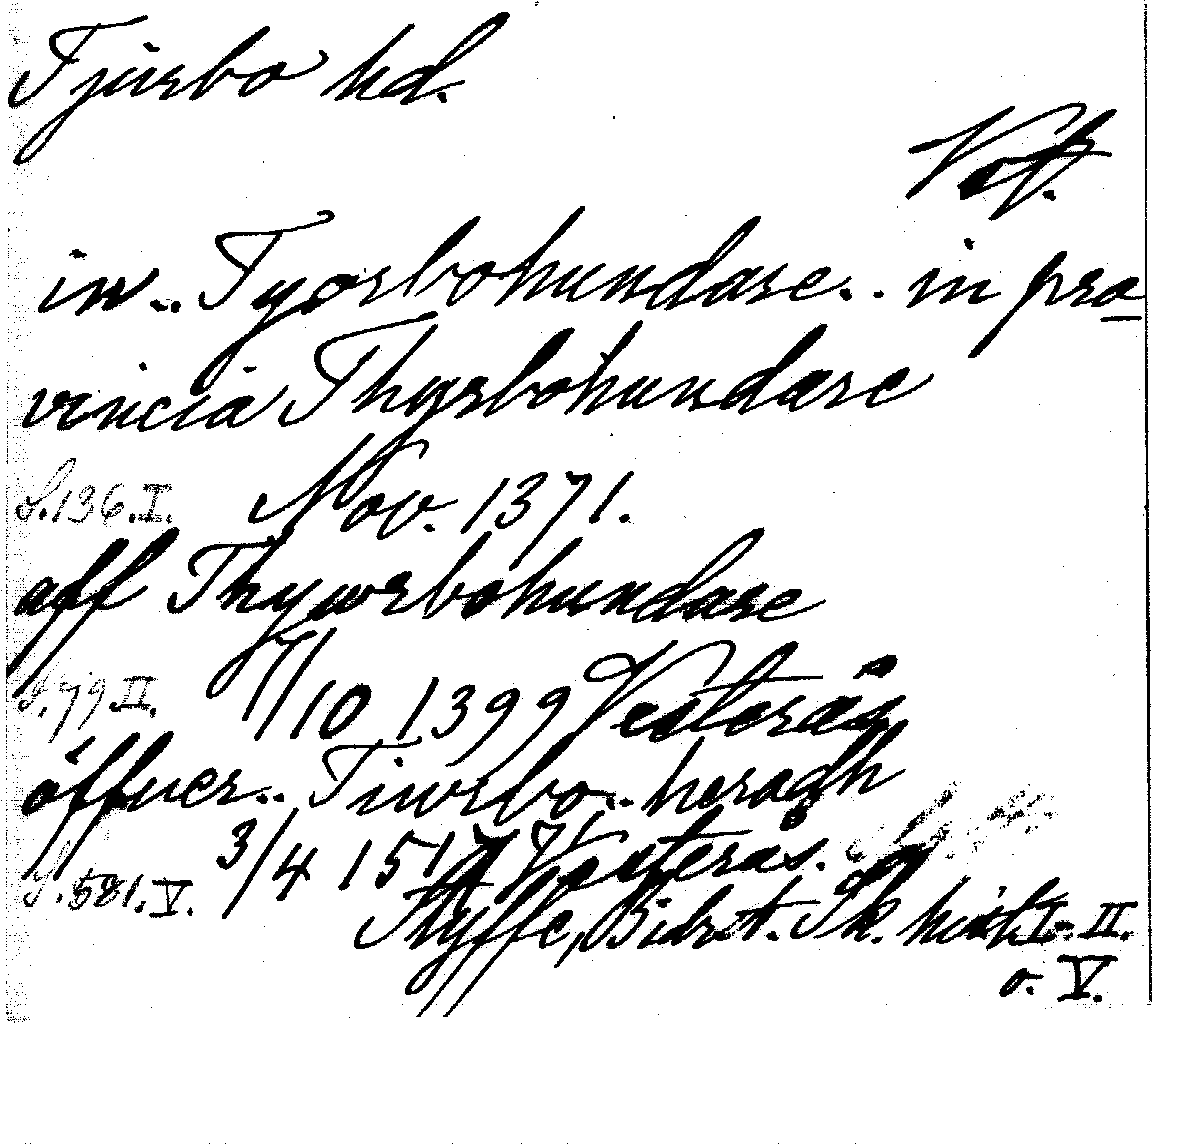 Tjurbo hd.
Vstl.
in.. Tyorbohundare. . in pro
vincia Thyrbohundare
S.136.I. Nov. 1371.
aff Thywrbohundare
S.79 II. 7/10 1399 Vesterås
öffuer.. Tiwrbo.. heradh
S.581.V. 3/4 1517 Vesterås.
Styffe, Bidr. t. Sk. hist. I. II.
o. V.